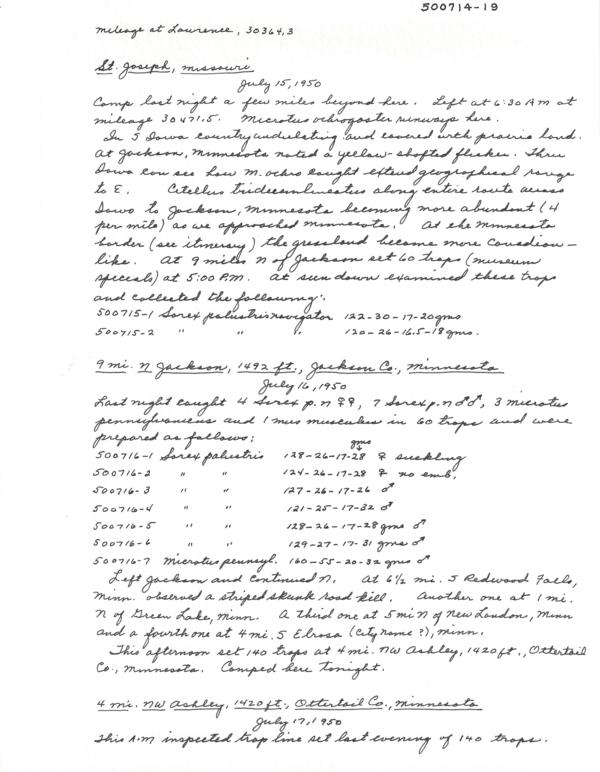 500714-19
mileage at Lawrence, 30364.3
St. Joseph, Missouri
July 15, 1950
Camp last night a few miles beyond here. Left at 6:30 AM at
mileage 30471.5. Microtus ochrogaster runways here.
In S Iowa country undulating and covered with prairie land.
At Jackson, Minnesota noted a yellow-shafted flicker. Thru
Iowa can see how M. ochro caught extend geographical range
to E. Citellus tridecemlineatus along entire route across
Iowa to Jackson, Minnesota becoming more abundant (4
per mile) as we approached Minnesota. At the Minnesota
border (see itinerary) the grassland became more Canadian-
like. At 9 miles N of Jackson set 60 traps (museum
specials) at 5:00 P.M. At sun down examined these traps
and collected the following:
500715-1 Sorex palustris navigator 122-30-17-20gms
500715-2 " " " 120-26-16.5-18gms.
9 mi. N Jackson, 1492 ft., Jackson Co., Minnesota
July 16, 1950
Last night caught 4 Sorex p. n ♀♀, 7 Sorex p. n ♂♂, 3 microtus
pennsylvanicus and 1 mus musculus in 60 traps and were
prepared as follows:
gms
500716-1 Sorex palustris 128-26-17-28 ♀ suckling
500716-2 " " 124-26-17-28 ♀ no emb.
500716-3 " " 127-26-17-26 ♂
500716-4 " " 121-25-17-32 ♂
500716-5 " " 128-26-17-28gms ♂
500716-6 " " 129-27-17-31 gms ♂
500716-7 Microtus pennsyl. 160-55-20-32 gms ♂
Left Jackson and continued N. At 6½ mi. S Redwood Falls,
Minn. observed a striped skunk road kill. Another one at 1 mi.
N of Green Lake, Minn. A third one at 5 mi N of New London, Minn
and a fourth one at 4 mi. S Elrosa (city name?), Minn.
This afternoon set 140 traps at 4 mi. NW Ashley, 1420 ft., Ottertail
Co., Minnesota. Camped here tonight.
4 mi. NW Ashley, 1420 ft., Ottertail Co., Minnesota
July 17, 1950
This A.M inspected trap line set last evening of 140 traps.